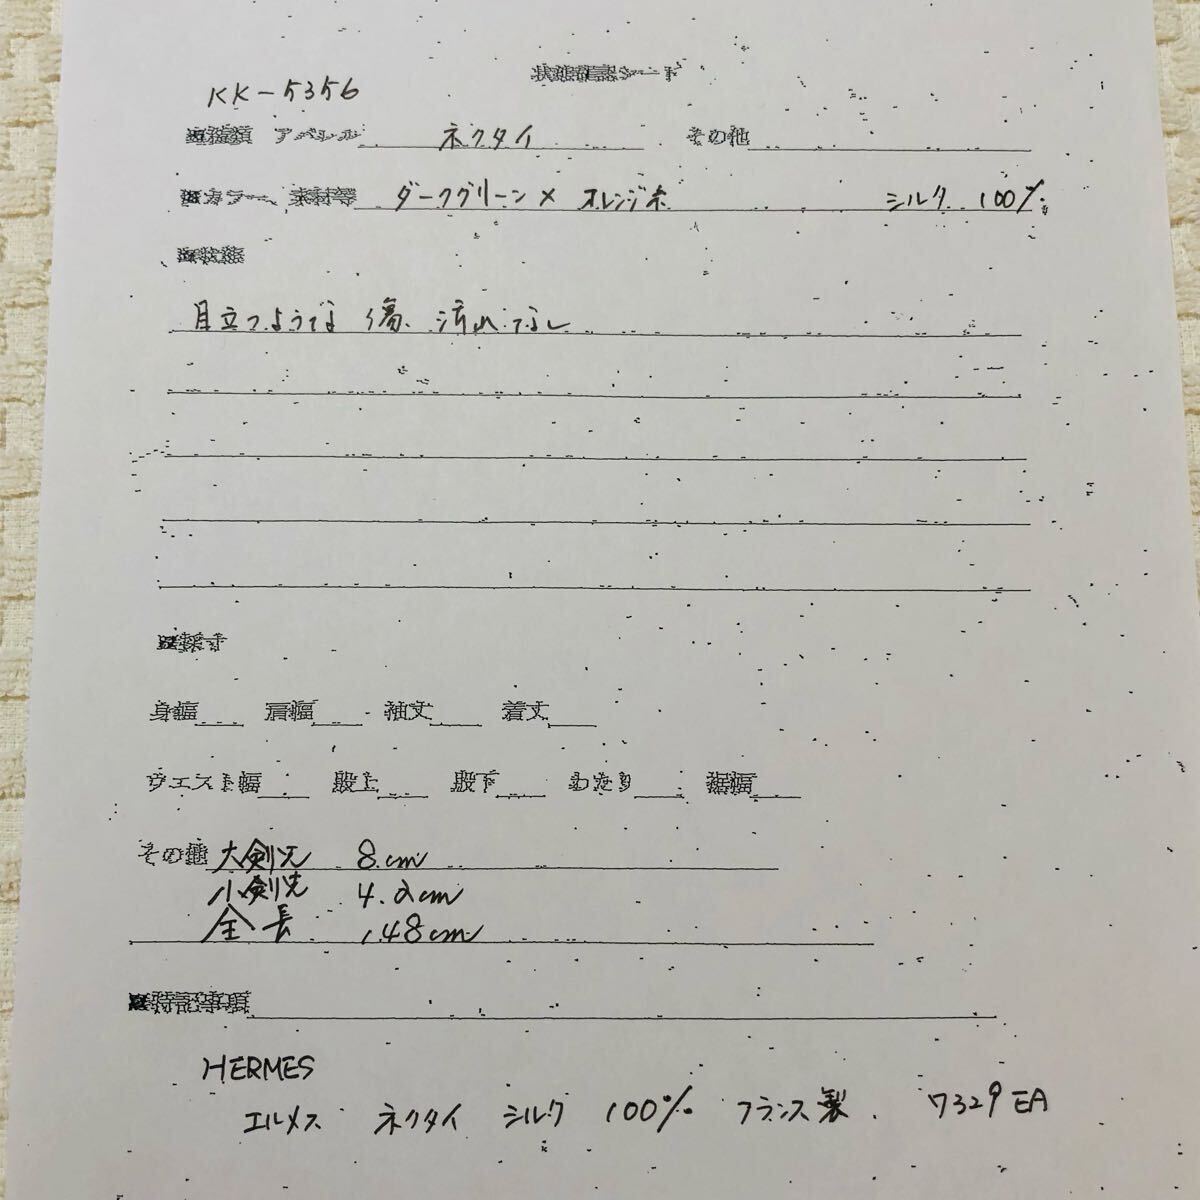 状態確認シート
KK-5356
■種類 アパレル ネクタイ その他
■カラー、素材等 ダークグリーン×オレンジ系 シルク 100%
■状態
目立つような傷、汚れなし
■採寸
身幅 肩幅 袖丈 着丈
ウエスト幅 股上 股下 わたり 裾幅
その他 大剣先 8cm
小剣先 4.2cm
全長 148cm
■特記事項
HERMES
エルメス ネクタイ シルク 100% フランス製. 7329 EA